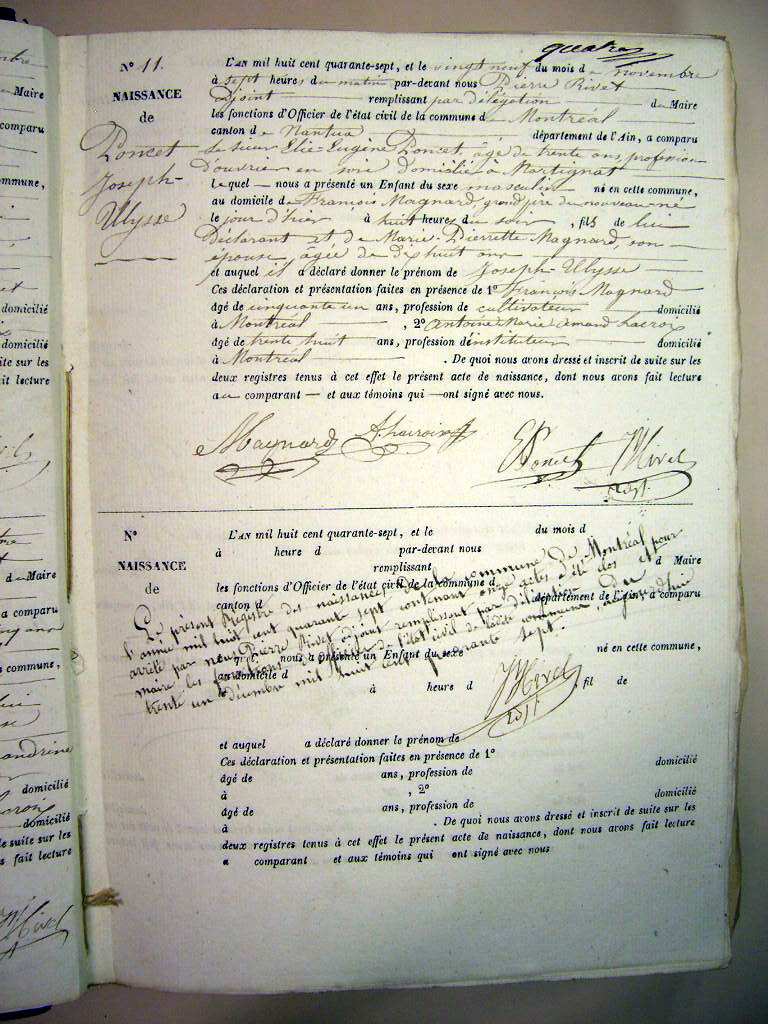 quatre
N° 11.
NAISSANCE
de
Poncet
Joseph-
Ulysse
L'AN mil huit cent quarante-sept, et le vingt neuf du mois de novembre
à sept heures du matin par-devant nous Pierre Rivet
adjoint remplissant par délégation du Maire
les fonctions d'Officier de l'état civil de la commune de Montréal
canton de Nantua département de l'Ain, a comparu
Le sieur Elie-Eugène Poncet, âgé de trente ans, profession
d'ouvrier en soie domicilié à Martignat
lequel nous a présenté un Enfant du sexe masculin né en cette commune,
au domicile de François Magnard, grand père du nouveau-né
le jour d'hier à huit heures du soir, fils de lui
Déclarant et de Marie-Pierrette Magnard, son
épouse, âgée de dix huit ans
et auquel il a déclaré donner le prénom de Joseph-Ulysse
Ces déclaration et présentation faites en présence de 1° François Magnard
âgé de cinquante un ans, profession de cultivateur domicilié
à Montréal, 2° Antoine Marie amand Lacroix
âgé de trente huit ans, profession d'instituteur domicilié
à Montréal. De quoi nous avons dressé et inscrit de suite sur les
deux registres tenus à cet effet le présent acte de naissance, dont nous avons fait lecture
au comparant et aux témoins qui ont signé avec nous.
Magnard A. Lacroix E Poncet Rivet
adjt
N°
NAISSANCE
de
L'AN mil huit cent quarante-sept, et le du mois d
à heure d par-devant nous
remplissant d Maire
les fonctions d'Officier de l'état civil de la commune d
canton d département de l'Ain, a comparu
Le présent Registre des naissances de la commune de Montréal pour
l'année mil huit cent quarante sept contenant onze actes a été clos et
arrêté par nous Pierre Rivet adjoint remplissant par délégation du
maire les fonctions d'officier de l'état civil de ladite commune, aujourd'hui
trente un décembre mil huit cent quarante sept.
lequel nous a présenté un Enfant du sexe né en cette commune,
au domicile d
à heure d , fil de
Rivet
adjt
et auquel a déclaré donner le prénom de
Ces déclaration et présentation faites en présence de 1°
âgé de ans, profession de domicilié
à , 2°
âgé de ans, profession de domicilié
à . De quoi nous avons dressé et inscrit de suite sur les
deux registres tenus à cet effet le présent acte de naissance, dont nous avons fait lecture
a comparant et aux témoins qui ont signé avec nous